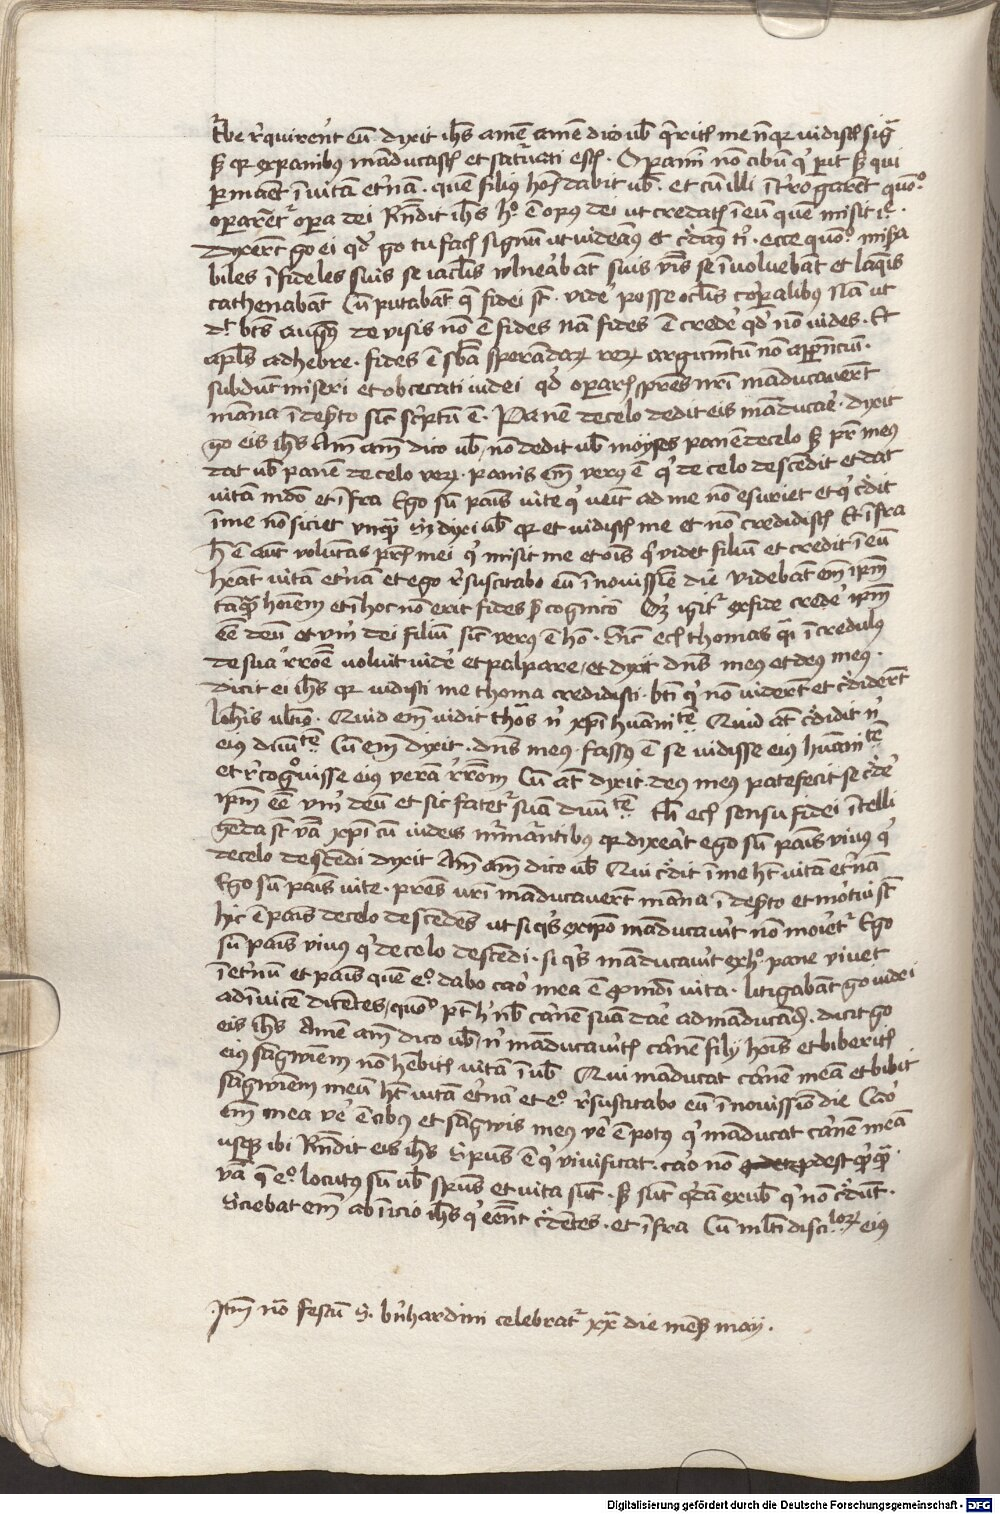 Tbe rquirent eu dyxit ihs amē amē dico ub qritis me nō qr vidistis sig
sz qr ex panibus māducastis et saturati estis. Operamī nō cibū q perit sz qui
permaet ī vitā eternā. quē filius hois dabit ub. et cū illi īterrogarēt quo
operarēt opera dei Rndit ihs hoc ē opus dei ut credatis ī eū quē misit ille.
dyxert go ei qd go tu facis signū ut videam9 et credam9 ti. ecce quo misera
biles īfideles suis se iaculis vulnerabāt suis viis se īvoluebāt et laqueis
cathenabāt Cū putabāt q fidei st. videre posse oclis corporalibus Nā ut
dt bts aug9 de visis nō ē fides nā fides ē credere qd nō vides. Et
apls ad hebre. fides ē sba sperandarum rerum argumtū nō apparenciū.
subdūt miseri et obcecati iudei qd operaris pres nri māducauerēt
māna ī deserto sicut scriptū ē. Panē de celo dedit eis māducare. dyxit
go eis ihs Am am dico ub nō dedit ub moyses panē de celo sz pr meus
dat ub panē de celo verum. panis em verus ē q de celo descēdit et dat
vitā mdo et īfra Ego sū panis vite q venit ad me nō esuriet et q credit
ī me nō siciet vnq Sz dyxi ub qr et vidistis me et nō credidistis Et īfra
hec ē aut volūtas pris mei q misit me et ois q videt filiū et credit ī eū
heat vitā eternā et ego rsuscitabo eū ī novissīe die videbāt em ipm
tāq hoiem et ī hoc nō erit fides sz cognicio Oz igit ex fide credere ipm
eē deū et vm dei filiū sicut verus ē ho. Sic eciam thomas q ī credulus
de sua rrōe voluit videre et palpare, et dyxit dns meus et deus meus.
dicit ei ihs qr vidisti me thoma credidisti. bti q nō viderēt et credidert
Johis ultio. Quid em vidit thoas n xpi huānitē Quid at credidit n
eius diuitē Cū em dyxit. dns meus. fassus ē se vidisse eius huānitē
et rcognouisse eius verā rrōem Cū at dyxit deus meus patefecit se credere
ipm eē vm deū et sic fatetur suā diuitē th eciam sensu fidei ītelli
gēda st vā xpi cū iudeis murmurantibus qr dyxerat ego sū panis vivus q
de celo descēdi dyxit Am am dico ub Qui credit ī me ht vitā eternā
Ego sū panis vite. pres vri māducauert māna ī deserto et mortui st
hic ē panis de celo descēdēs ut si qs ex ipo māducauit nō morietur Ego
sū panis vivus q de celo descēdi. si qs māducauit ex ho pane vivet
ī eternū et panis quē eo dabo caro mea ē pro mdi vita. litigabāt go iudei
ad īuicē dicētes, quo pt hic nb carnē suā dare ad māducādū. dicit go
eis ihs Amē am dico ub, n māducauitis carnē filii hois et biberitis
eius sāgwinem nō hebitis vitā ī ub Qui māducat carnē meā et bibit
sāgwinem meū ht vitā eternā et eo rsuscitabo eū ī novissīo die Caro
em mea vere ē cibus et sāgwis meus vere ē potus q māducat carnē meā
usqz ibi Rndit eis ihs Spūs ē q vivificat. caro nō prodest quicquam.
vā q eo locutus sū ub spūs et vita sūt. sz sūt qdā ex ub q nō credūt.
Sciebat em ab inicio ihs q eēnt credētes. et īfra Cū mlti discipulorum eius
Itm no festū S. bnhardini celebrat xx die mēs may.
Digitalisierung gefördert durch die Deutsche Forschungsgemeinschaft - DFG